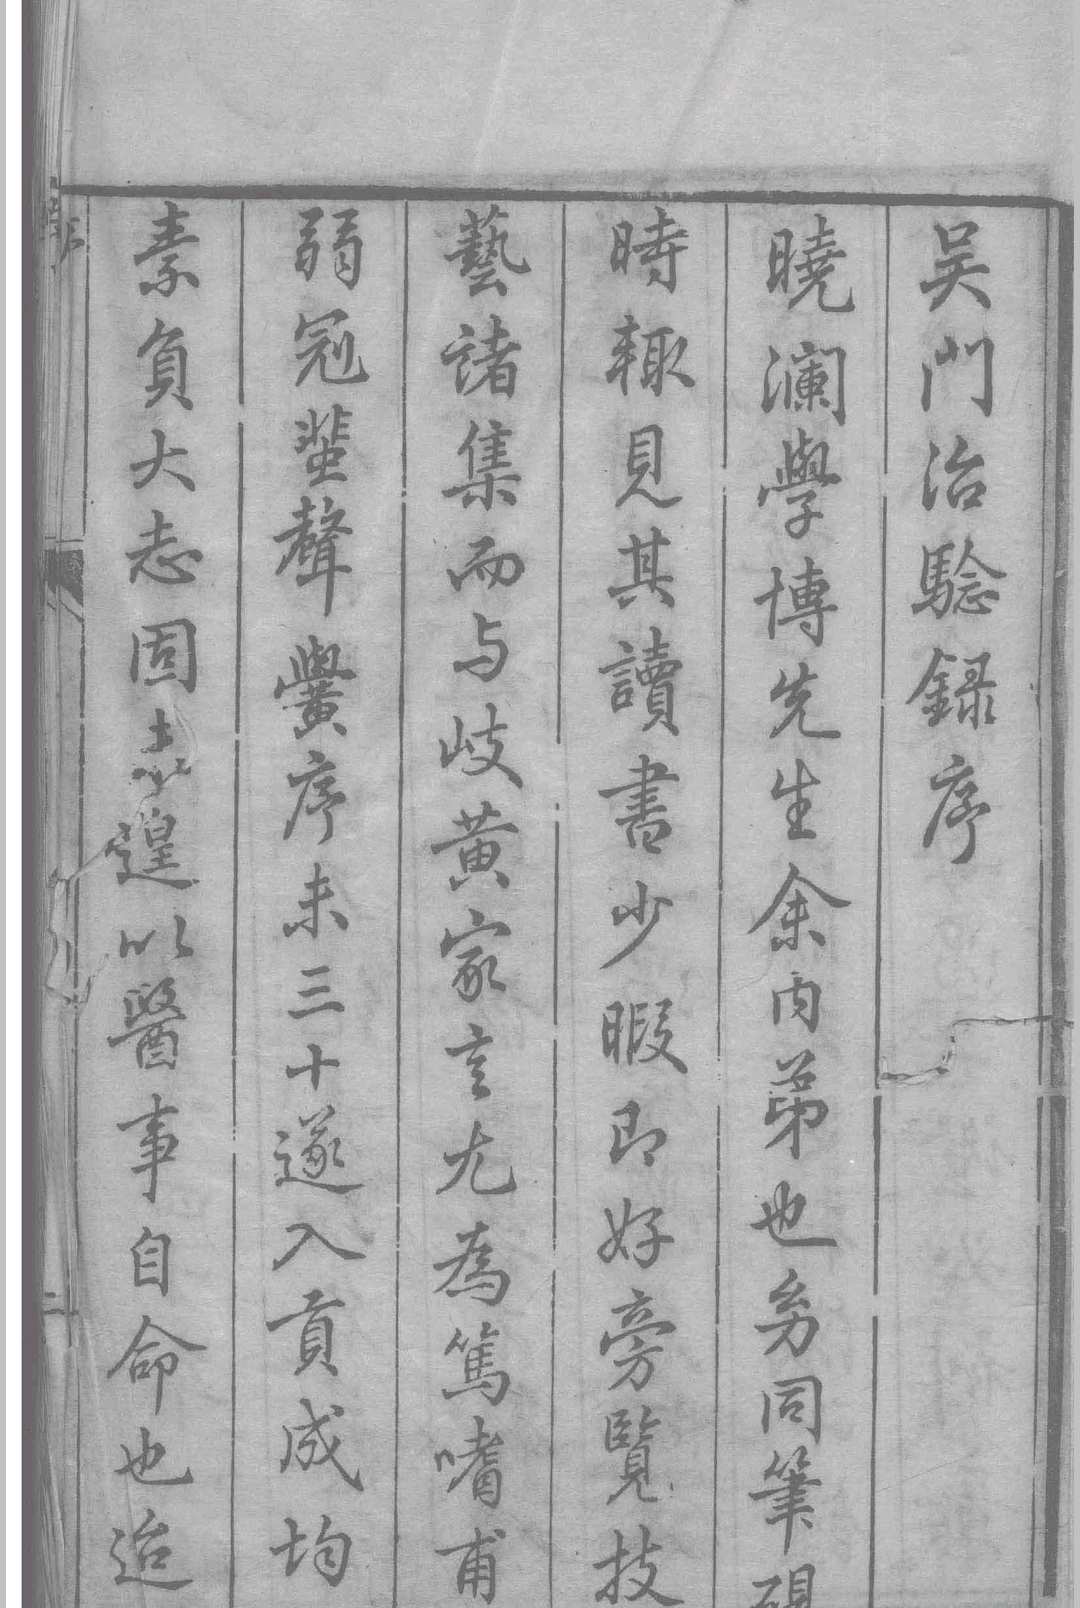 吴門治騐録序
曉瀾學博先生余内弟也㓜同筆硯
時輙見其讀書少暇即好旁覽技
藝諸集而与岐黄家言尤為篤嗜甫
弱冠蜚聲黌序未三十遂入貢成均
素負大志固未遑以醫事自命也迨
序
二